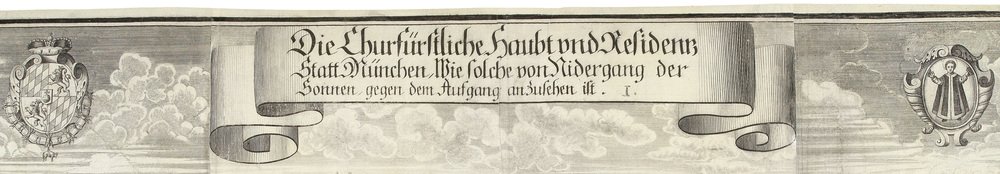 Die Churfürstliche Haubt vnd Residenz
Statt München, Wie solche von Nidergang der
Sonnen gegen dem Aufgang anzusehen ist. I.